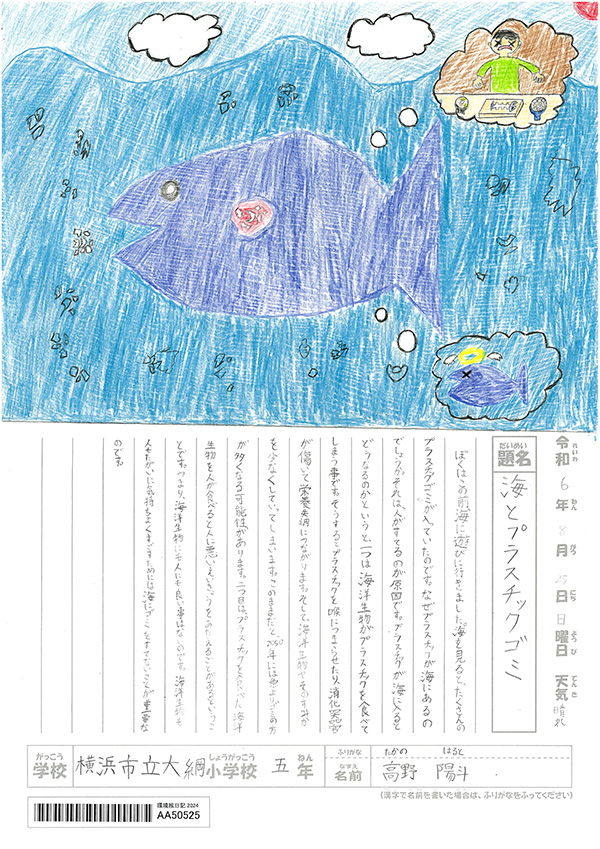 令和6年8月25日日曜日 天気 晴れ
だいめい
題名 海とプラスチックゴミ
ぼくはこの前海に遊びに行きました。海を見ると、たくさんの
プラスチックゴミが入っていたのです。なぜプラスチックが海にあるの
でしょうか。それは、人がすてるのが原因です。プラスチックが海に入ると
どうなるのかというと、一つは海洋生物がプラスチックを食べて
しまう事です。そうするとプラスチックを喉につまらせたり、消化器官
が傷いて栄養失調につながります。そして、海洋生物やそのすみか
を少なくしていってしまいます。このままだと2050年には魚よりゴミの方
が多くなる可能性があります。二つ目は、プラスチックを食べた海洋
生物を人が食べると人に悪いえいきょうをあたえることがあるというこ
とです。つまり、海洋生物にも人にも良い事はないのです。海洋生物も
人もたがいに気持ちよくすごすためには海にゴミをすてないことが重要な
のです。
がっこう しょうがっこう ねん
学校 横浜市立大綱小学校 五年
ふりがな たかの はると
なまえ
名前 高野 陽斗
(漢字で名前を書いた場合は、ふりがなをふってください)
環境絵日記 2024
AA50525